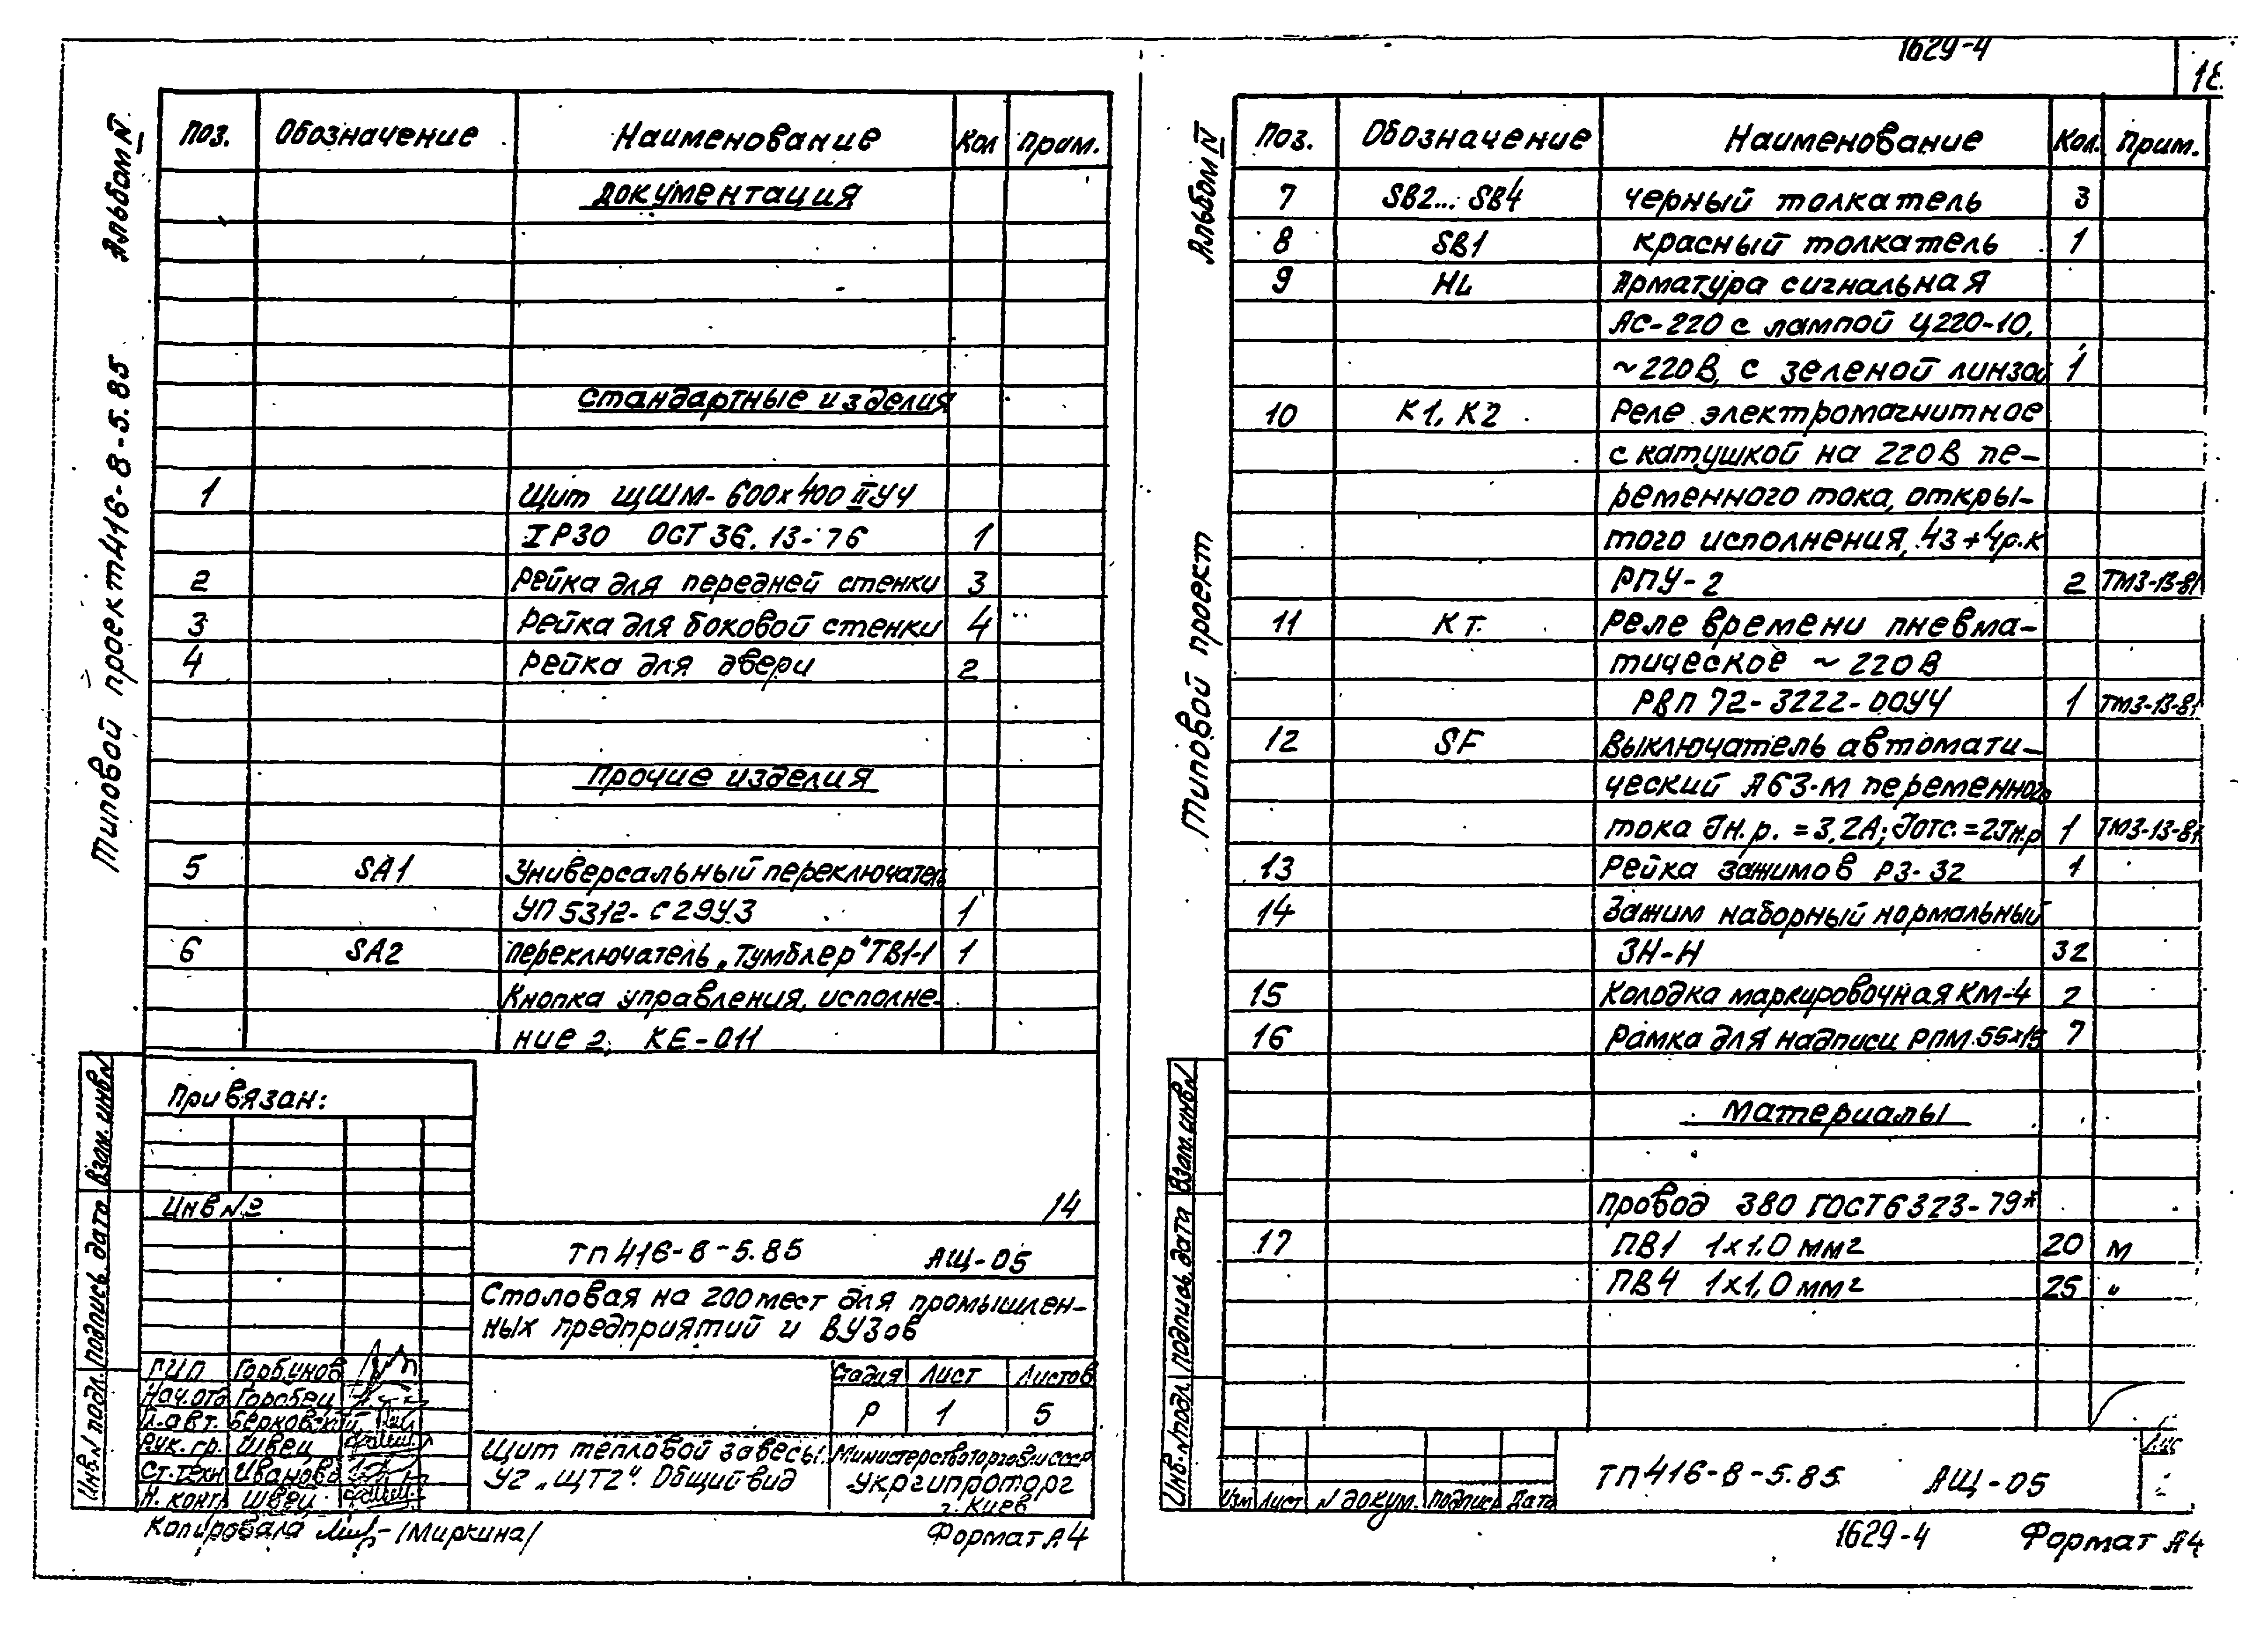 1629-4
18
Альбом IV
Типовой проект 416-8-5.85
Поз. Обозначение Наименование Кол Прим.
Документация
Стандартные изделия
1 Щит ЩШМ-600х400 II У4
IP30 ОСТ 36.13-76 1
2 Рейка для передней стенки 3
3 Рейка для боковой стенки 4
4 Рейка для двери 2
Прочие изделия
5 SA1 Универсальный переключатель
УП5312-С29У3 1
6 SA2 Переключатель „Тумблер" ТВ1-1 1
Кнопка управления, исполне-
ние 2, КЕ-011
Привязан:
Инв №
14
ТП 416-8-5.85 АЩ-05
Столовая на 200 мест для промышлен-
ных предприятий и ВУЗов
Стадия Лист Листов
Р 1 5
ГИП Горбунов
Нач.отд Горобец
Гл.авт. Берковский
Рук. гр. Швец
Ст.техн Иванова
Н. конт. Швец
Щит тепловой завесы
У2 „ЩТ2". Общий вид
Министерство торговли СССР
Укргипроторг
г. Киев
Инв.N подл. Подпись дата Взам.инвN
Копировала /Миркина/
Формат А4
Альбом IV
Типовой проект
Поз. Обозначение Наименование Кол. Прим.
7 SB2... SB4 черный толкатель 3
8 SB1 красный толкатель 1
9 HL Арматура сигнальная
АС-220 с лампой Ц220-10,
~220В, с зеленой линзой 1
10 К1, К2 Реле электромагнитное
с катушкой на 220В пе-
ременного тока, откры-
того исполнения, 4з+4р.к
РПУ-2 2 ТМ3-13-81
11 КТ Реле времени пневма-
тическое ~220В
РВП 72-3222-00У4 1 ТМ3-13-81
12 SF Выключатель автомати-
ческий А63-М переменного
тока Iн.р. = 3,2А; Iотс.=2Iн.р 1 ТМ3-13-81
13 Рейка зажимов РЗ-32 1
14 Зажим наборный нормальный
ЗН-Н 32
15 Колодка маркировочная КМ-4 2
16 Рамка для надписи РПМ 55х15 7
Материалы
Провод 380 ГОСТ 6323-79*
17 ПВ1 1х1,0 мм2 20 м
ПВ4 1х1,0 мм2 25 "
Инв.N подл. Подпись дата Взам.инвN
Изм Лист N докум. Подпись Дата
ТП 416-8-5.85 АЩ-05
1629-4 Формат А4